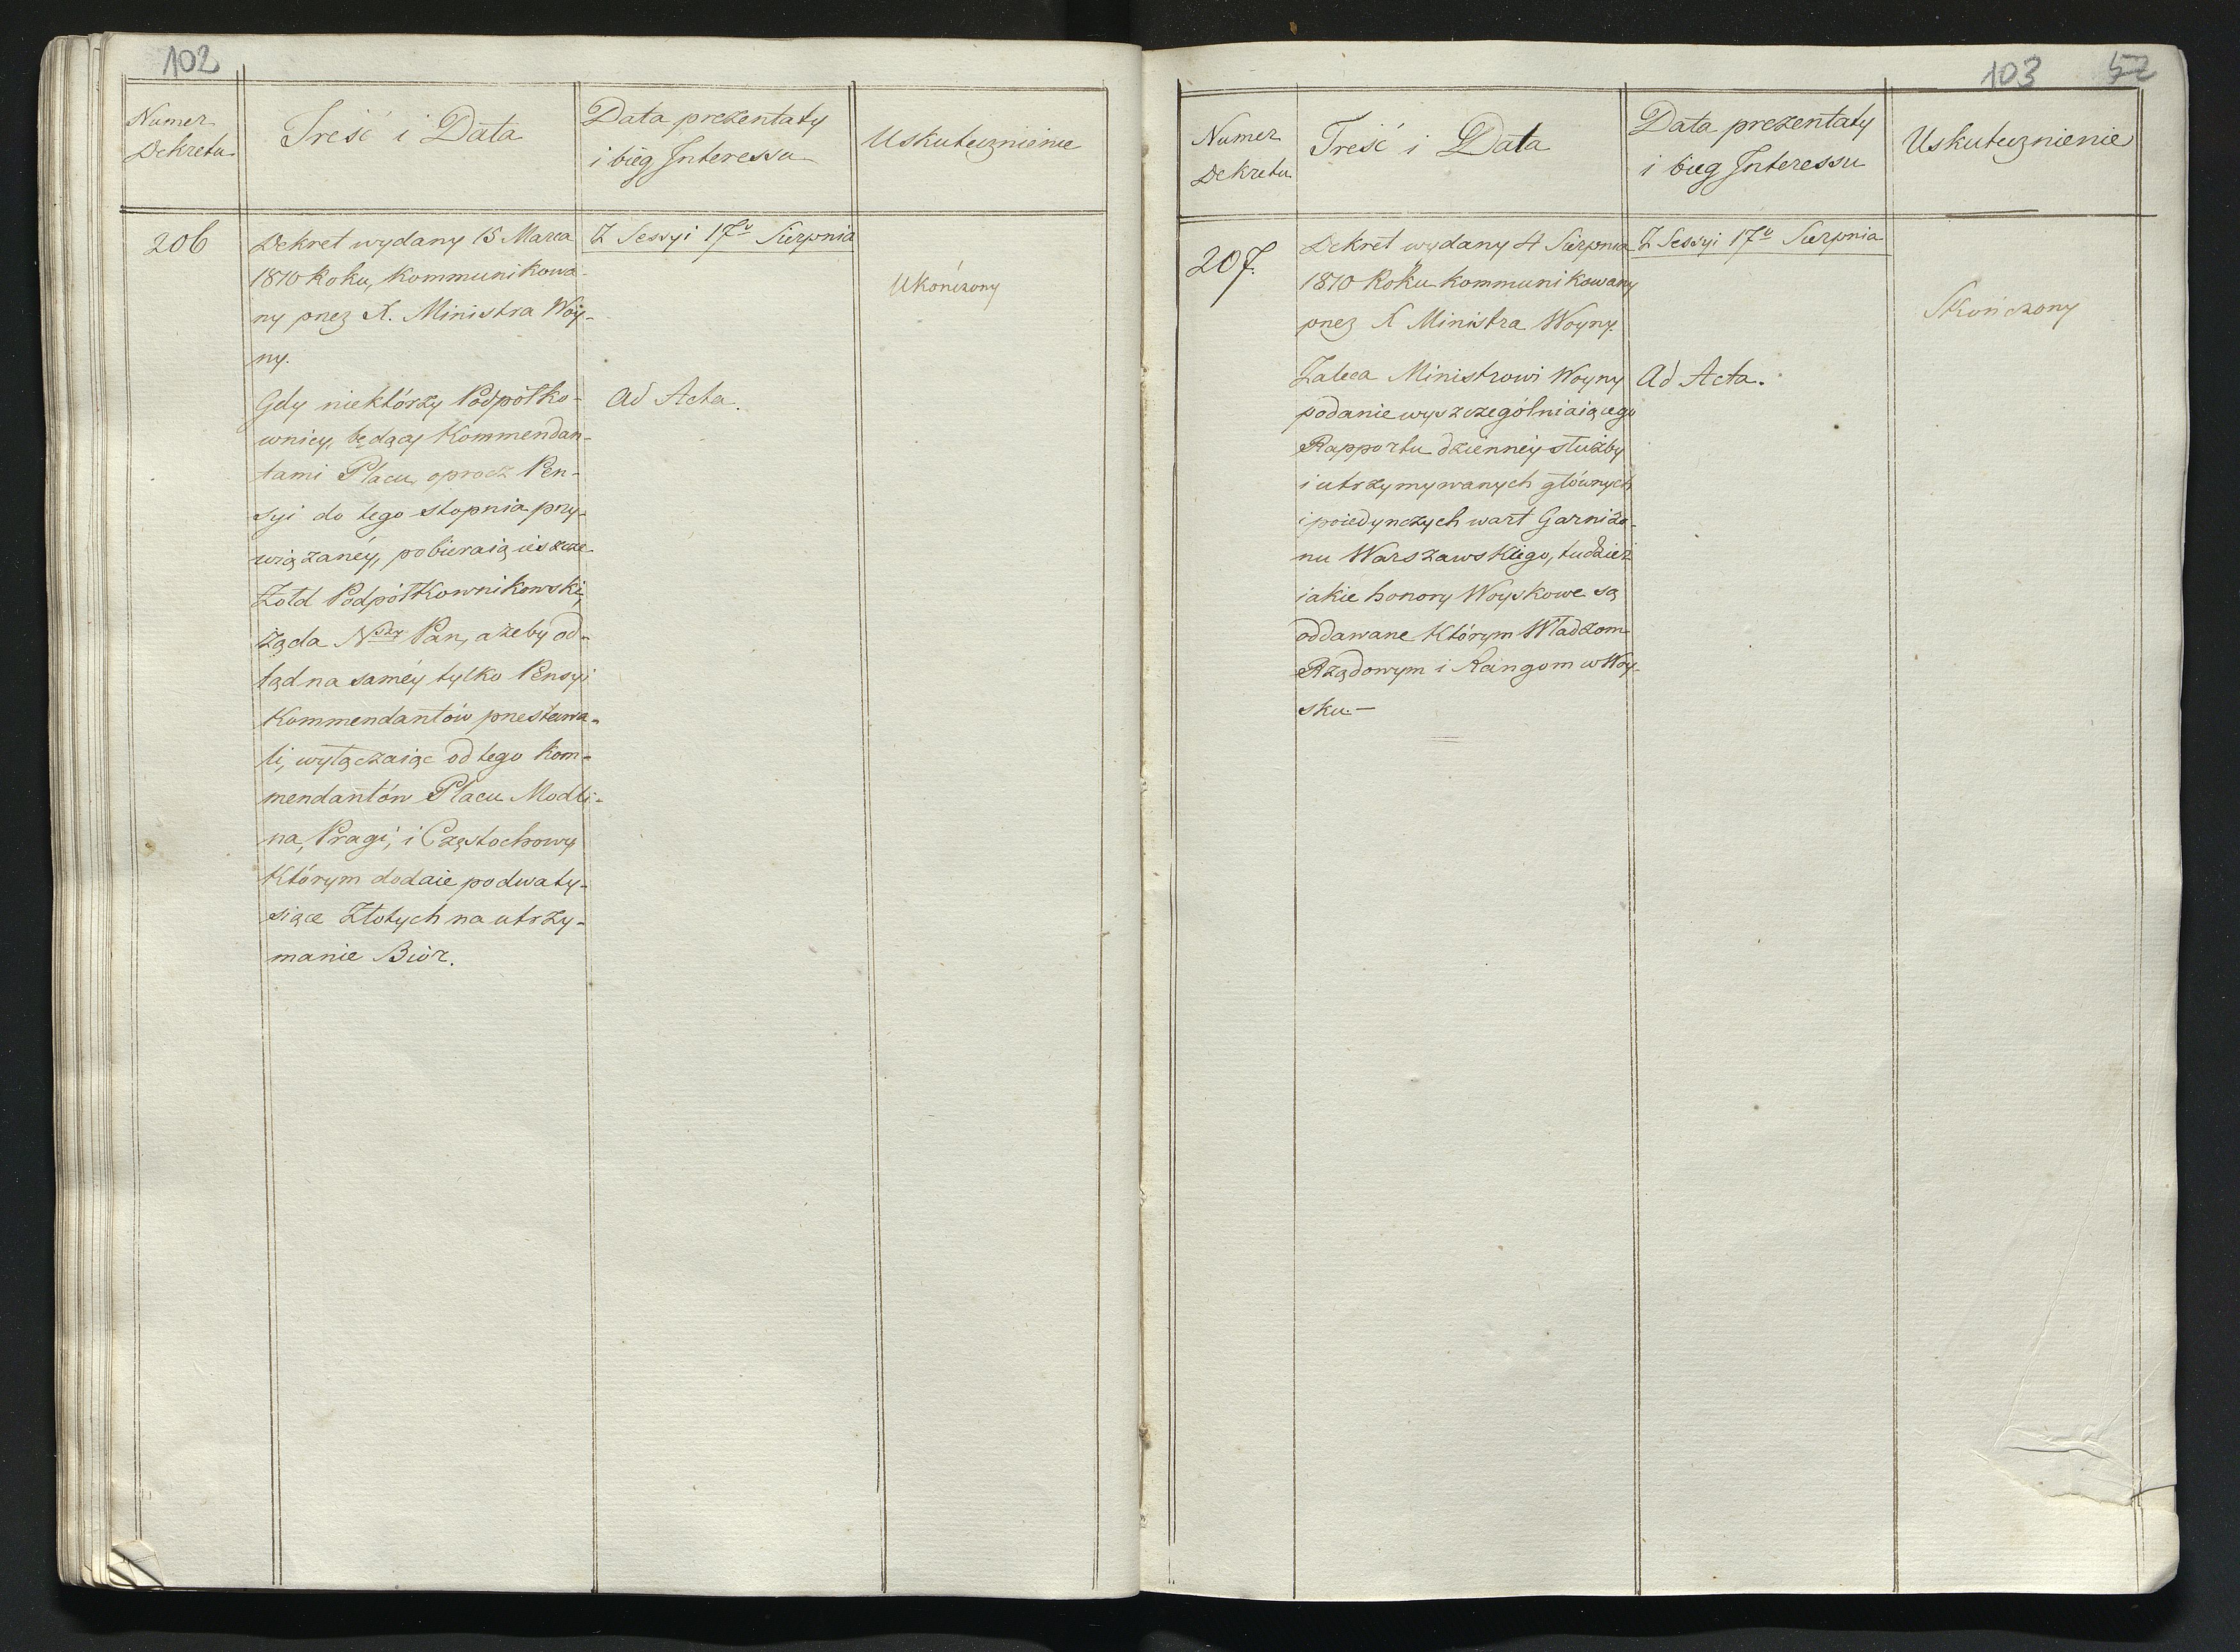 102
Numer
Dekretu
Treść i Data
Data prezentaty
i bieg Interessu
Uskutecznienie
206
Dekret wydany 15 Marca
1810 Roku, Kommunikowa-
ny przez X. Ministra Woy-
ny.
Gdy niektórzy Podpółko-
wnicy, będący Kommendan-
tami Placu, oprocz Pen-
syi do tego stopnia przy-
wiązanéy, pobieraią ieszcze
Żołd Podpółkownikowski,
żąda Nszy Pan, ażeby od-
tąd na saméy tylko Pensyi
Kommendantów przestawa-
li, wyłączaiąc od tego Kom-
mendantów Placu Modli-
na, Pragi, i Częstochowy
Którym dodaie po dwa ty-
siące Złotych na utrzy-
manie Biór.
Z Sessyi 17o Sierpnia
Ad Acta.
Ukończony
103 52
Numer
Dekretu
Treść i Data
Data prezentaty
i bieg Interessu
Uskutecznienie
207.
Dekret wydany 4 Sierpnia
1810 Roku kommunikowany
przez X Ministra Woyny.
Zaleca Ministrowi Woyny
podanie wyszczególniaiącego
Rapportu dziennéy służby
i utrzymywanych głównych
i poiedynczych wart Garnizo-
nu Warszawskiego, tudzież
iakie honory Woyskowe są
oddawane Którym Władzom
Rządowym i Rangom w Woy-
sku.—
Z Sessyi 17o Sierpnia
Ad Acta.
Skończony